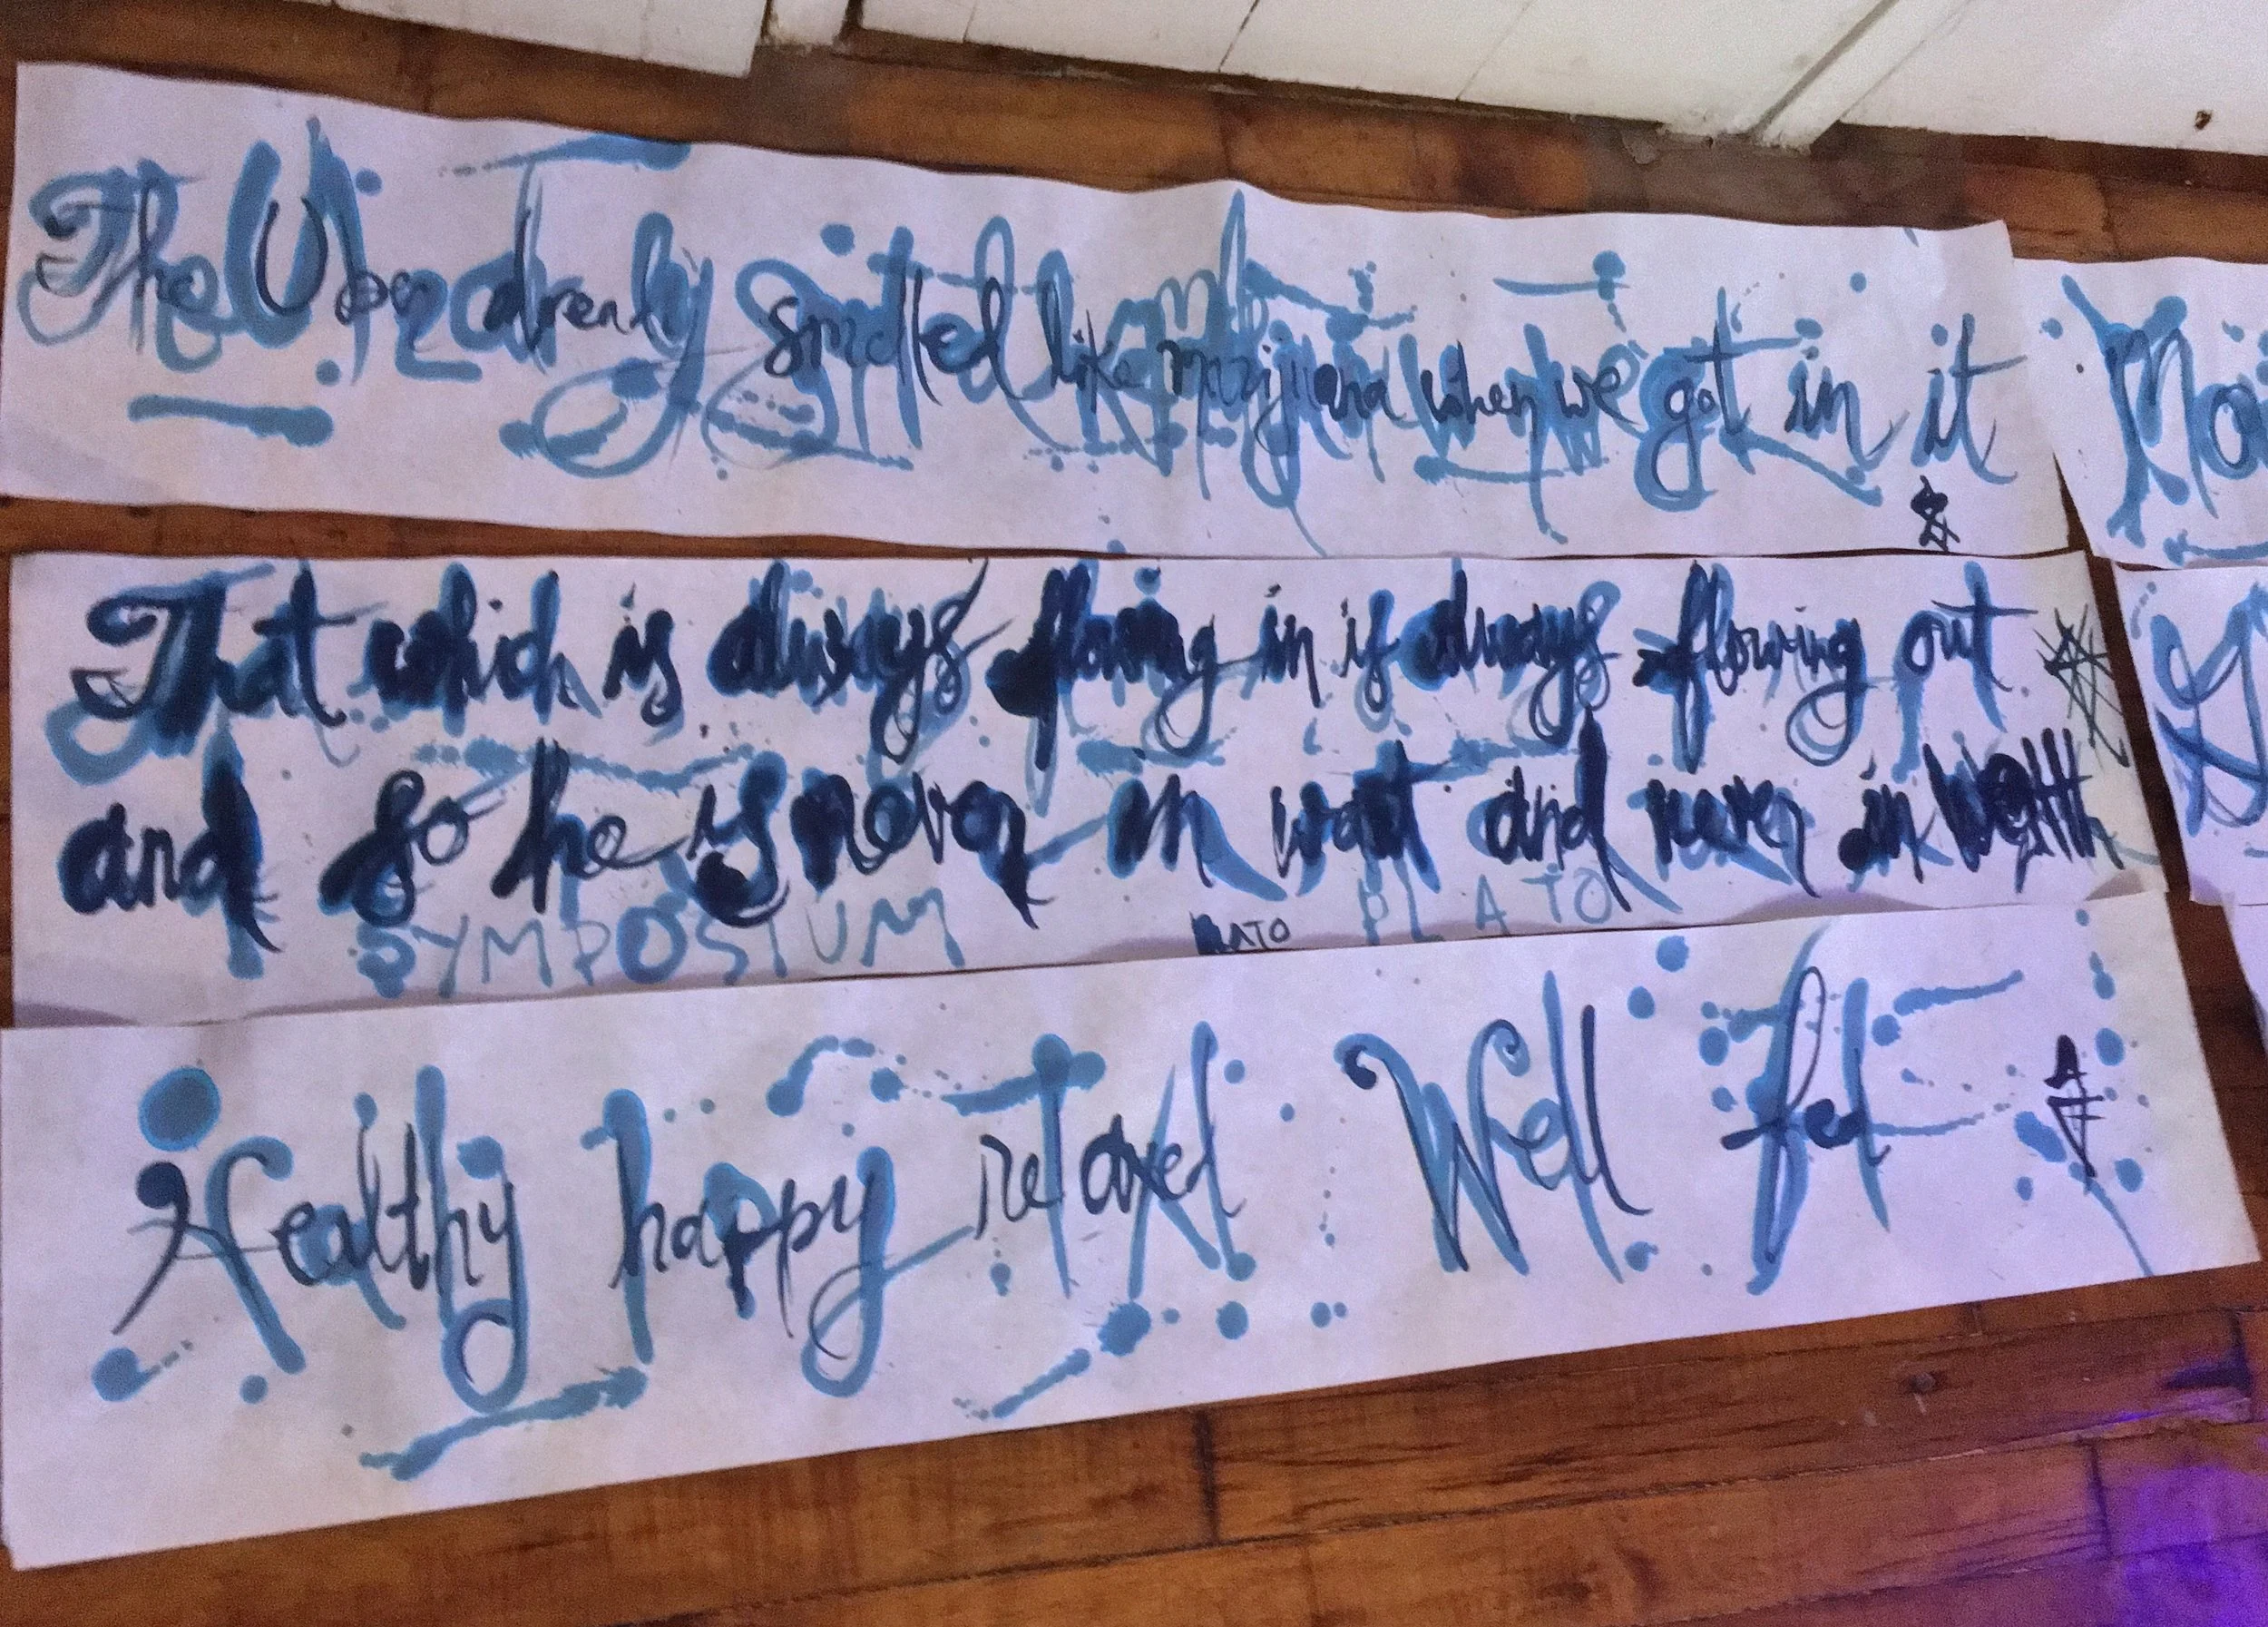 The Uber already smelled like marijuana when we got in it
That which is always flowing in is always flowing out
and so he is never in want and never in wealth
SYMPOSIUM PLATO PLATO
Healthy happy relaxed Well fed